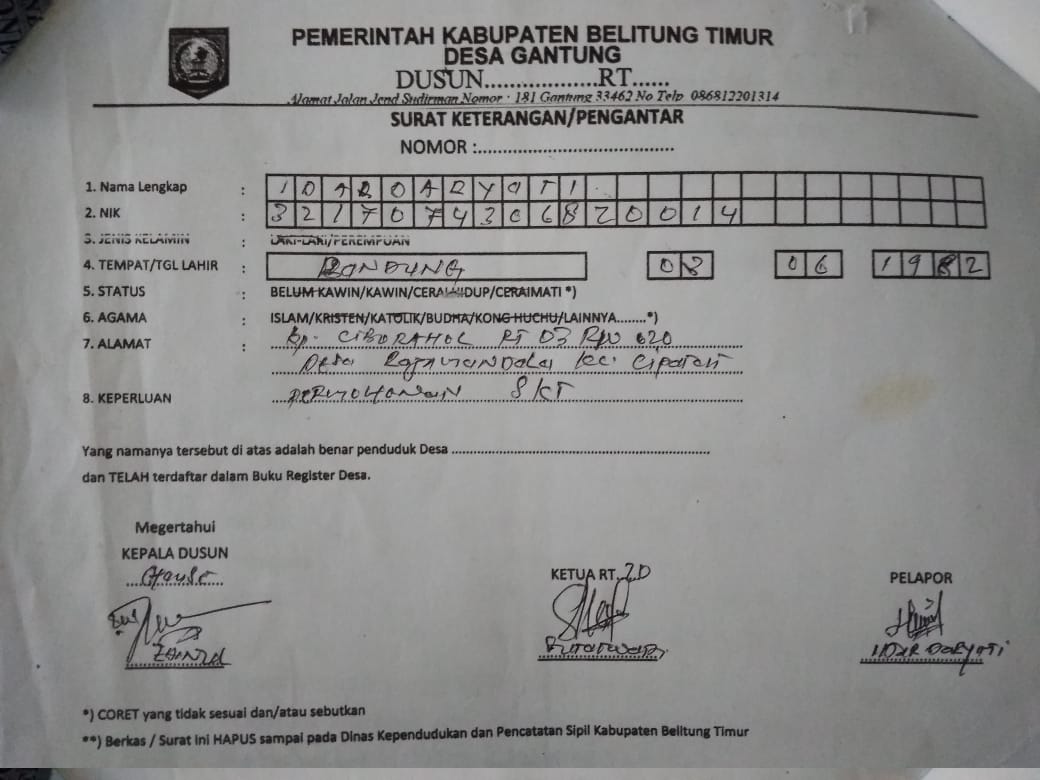 PEMERINTAH KABUPATEN BELITUNG TIMUR
DESA GANTUNG
DUSUN..................RT......
Alamat Jalan Jend Sudirman Nomor · 181 Gantung 33462 No Telp 086812201314
SURAT KETERANGAN/PENGANTAR
NOMOR :......................................
1. Nama Lengkap : IDAROARYATI
2. NIK : 3217074306820014
3. JENIS KELAMIN : LAKI-LAKI/PEREMPUAN
4. TEMPAT/TGL LAHIR : BANDUNG 03 06 1982
5. STATUS : BELUM KAWIN/KAWIN/CERAI HIDUP/CERAIMATI *)
6. AGAMA : ISLAM/KRISTEN/KATOLIK/BUDHA/KONG HUCHU/LAINNYA........*)
7. ALAMAT : Kp. CIBORAHOL RT 03 RW 020
Desa Rajamandala kec. Cipatat
8. KEPERLUAN PERMOHONAN SKT
Yang namanya tersebut di atas adalah benar penduduk Desa ..........................................................
dan TELAH terdaftar dalam Buku Register Desa.
Megertahui
KEPALA DUSUN
KETUA RT. 20
PELAPOR
ZAINAL
IDAR DARYATI
*) CORET yang tidak sesuai dan/atau sebutkan
**) Berkas / Surat ini HAPUS sampai pada Dinas Kependudukan dan Pencatatan Sipil Kabupaten Belitung Timur